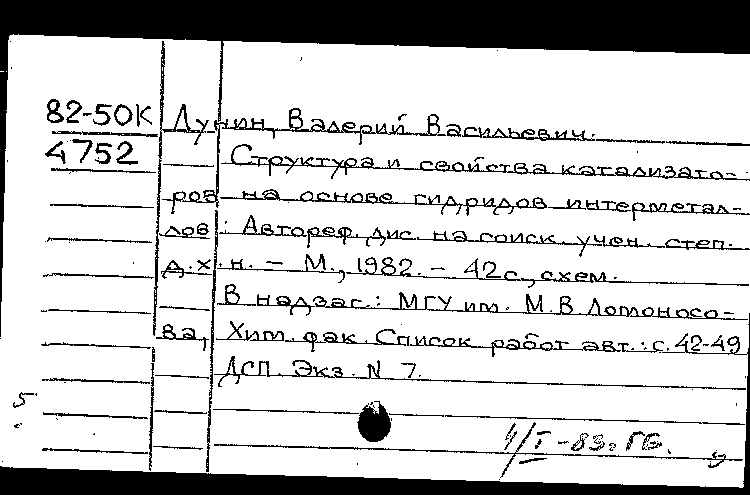 82-50К Лунин, Валерий Васильевич.
4752 Структура и свойства катализато-
ров на основе гидридов интерметал-
лов : Автореф. дис. на соиск. учен. степ.
д.х.н. - М., 1982. - 42 с., схем.
В надзаг.: МГУ им. М.В Ломоносо-
ва, Хим. фак. Список работ авт.: с. 42-49
ДСП. Экз. N 7.
5
4/I-83г. ГБ.